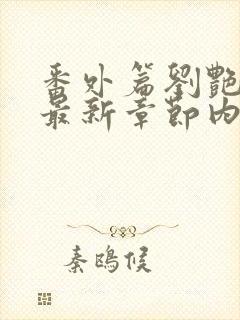 番外篇劉艷
最新章節內
秦鷗侯